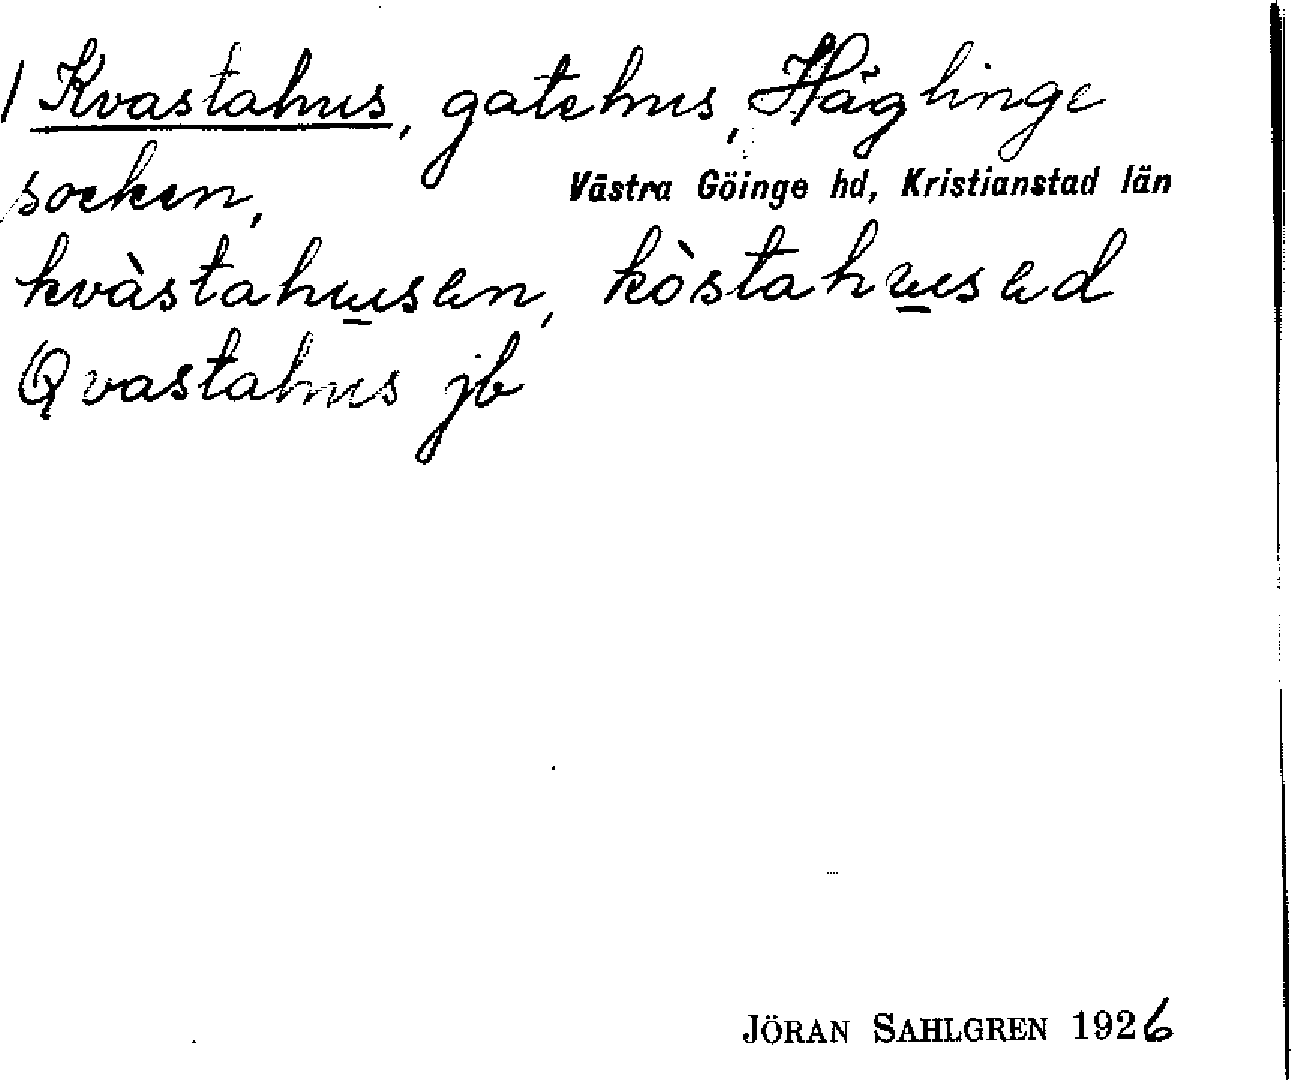 / Kvastahus, gatehus, Häglinge
socken, Västra Göinge hd, Kristianstad län
kvàstahu̲sen, kòstahu̲sed
Qvastahus jb
JÖRAN SAHLGREN 1926